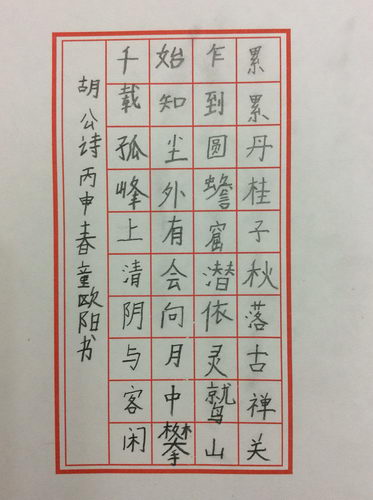 累累丹桂子秋落古禅关
乍到圆蟾窟潜依灵鹫山
始知尘外有会向月中攀
千载孤峰上清阴与客闲
胡公诗丙申春童欧阳书